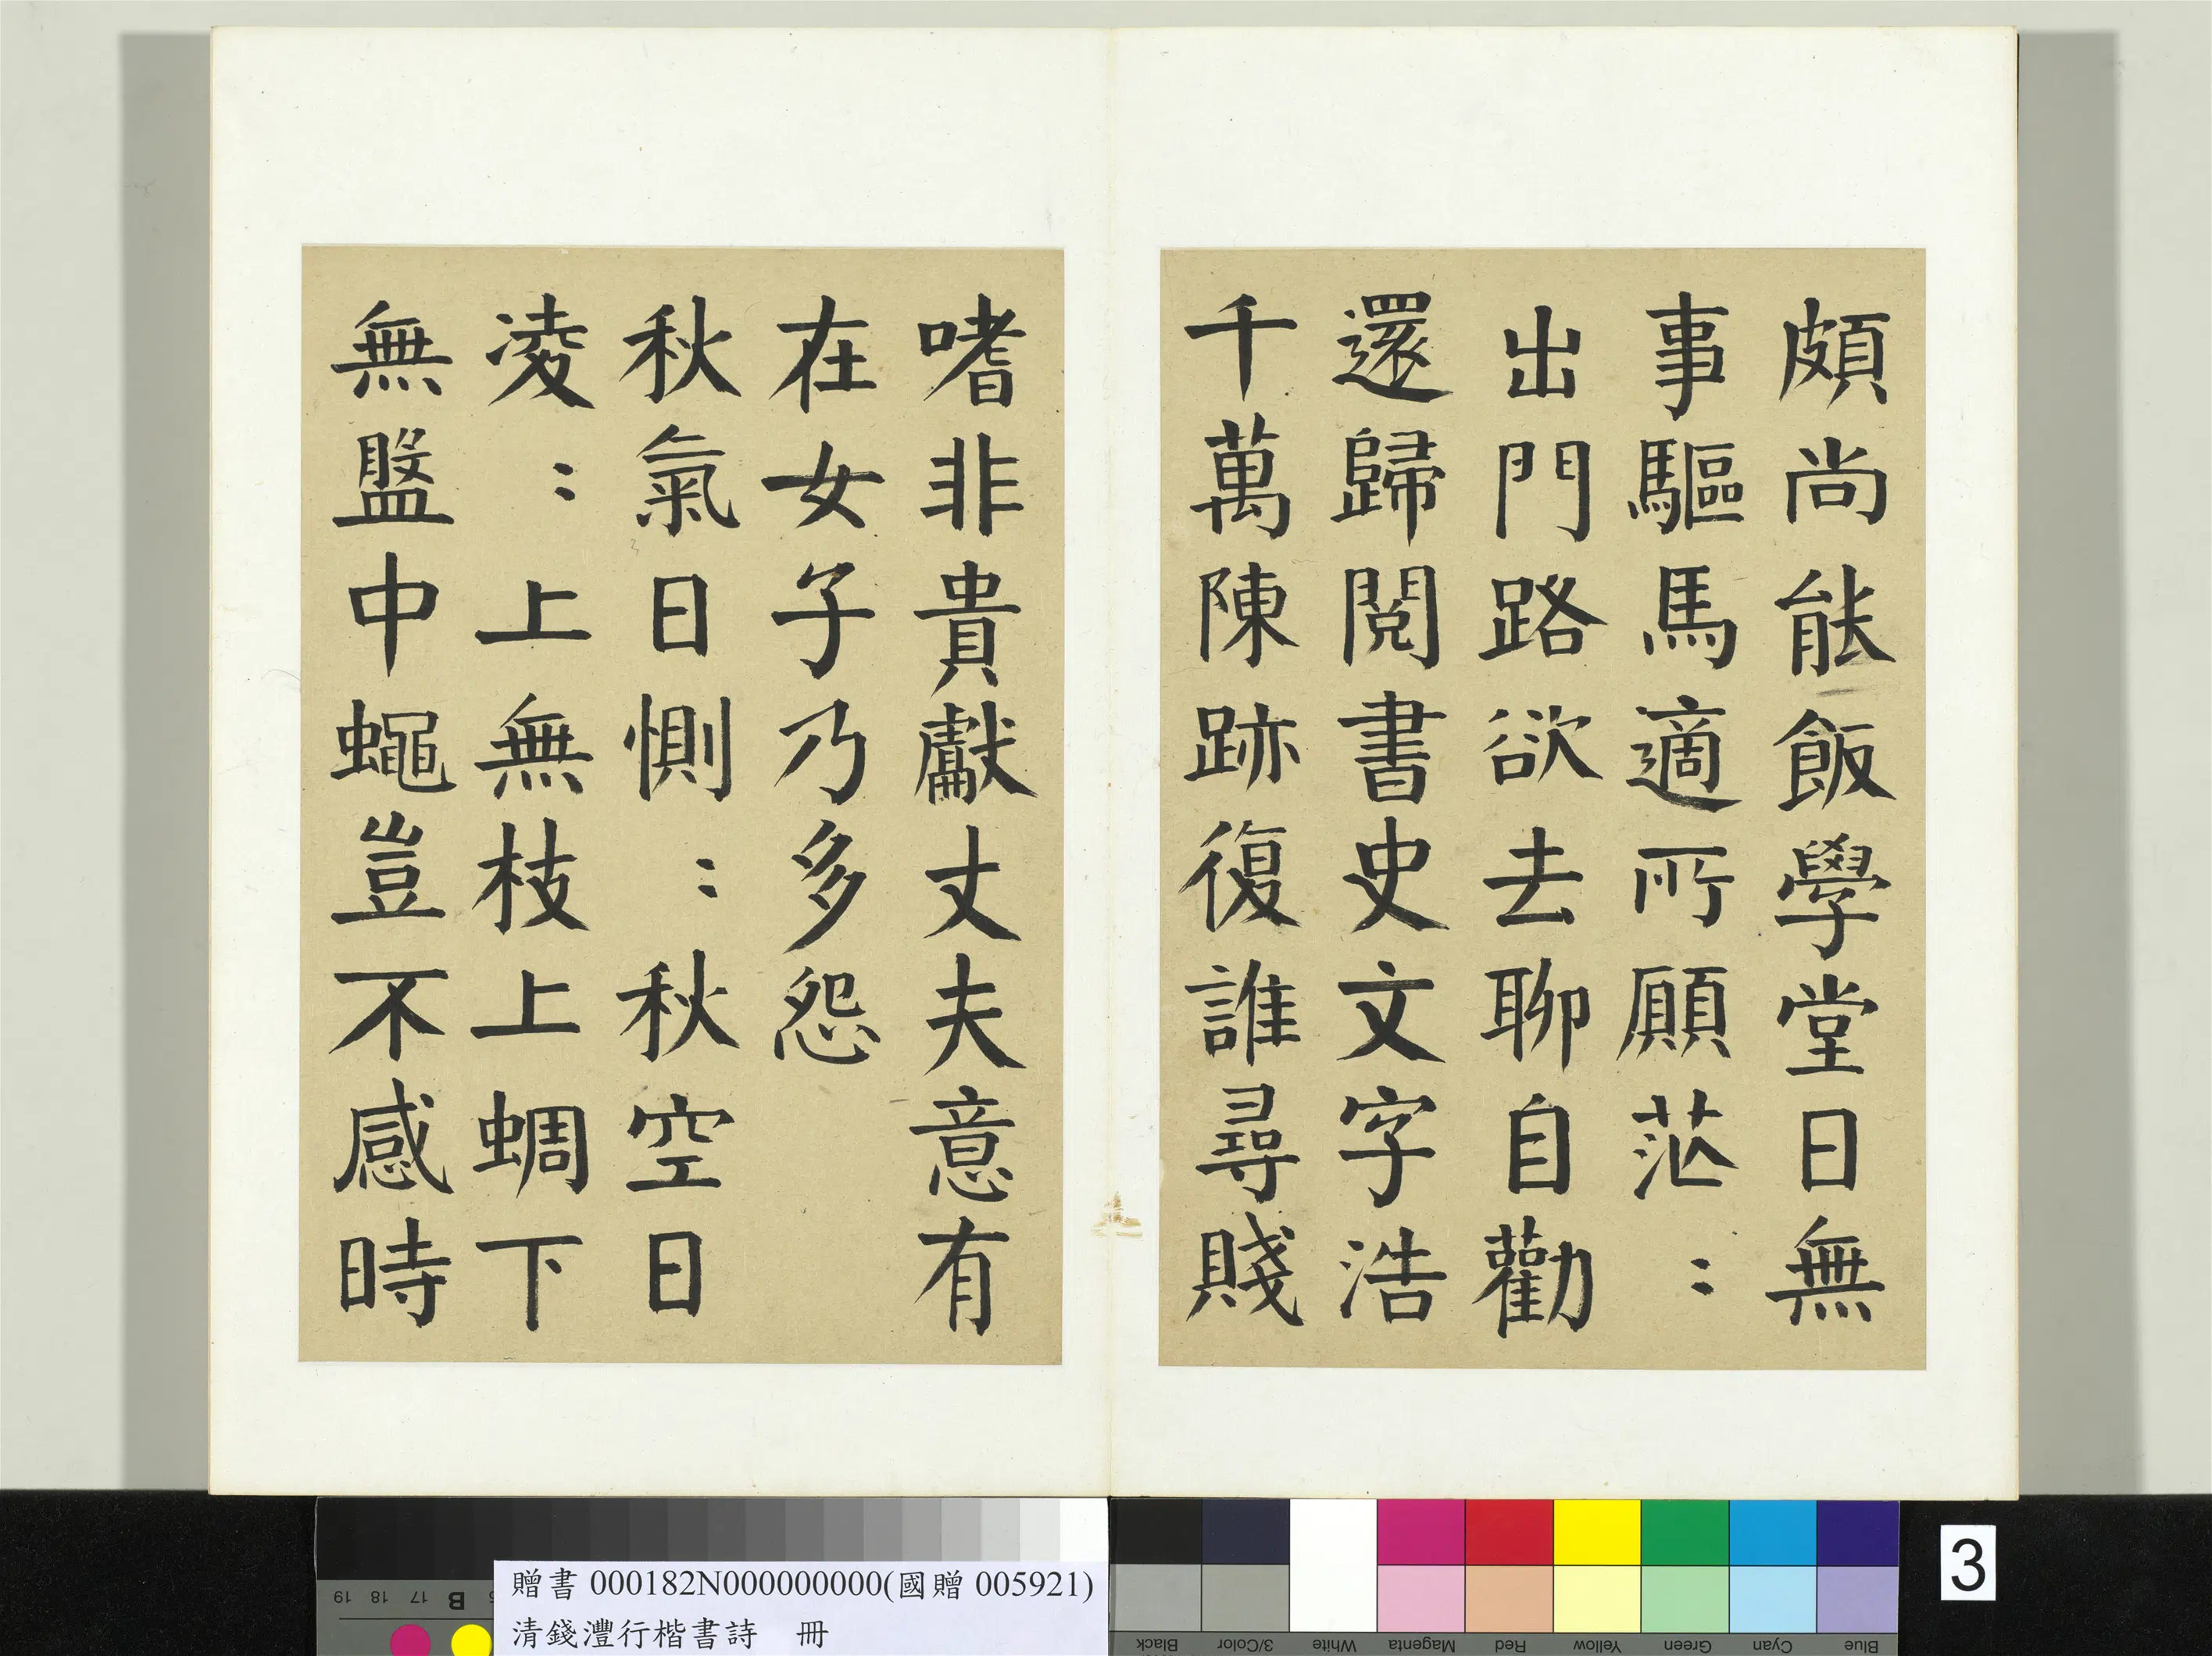 頗尚能飯學堂日無
事驅馬適所願茫〻
出門路欲去聊自勸
還歸閱書史文字浩
千萬陳跡復誰尋賤
嗜非貴獻丈夫意有
在女子乃多怨
秋氣日惻〻秋空日
凌〻上無枝上蜩下
無盤中蠅豈不感時
贈書 000182N000000000(國贈 005921)
清錢灃行楷書詩 冊
3
19 18 17 B
Black 3/Color White Magenta Red Yellow Green Cyan Blue